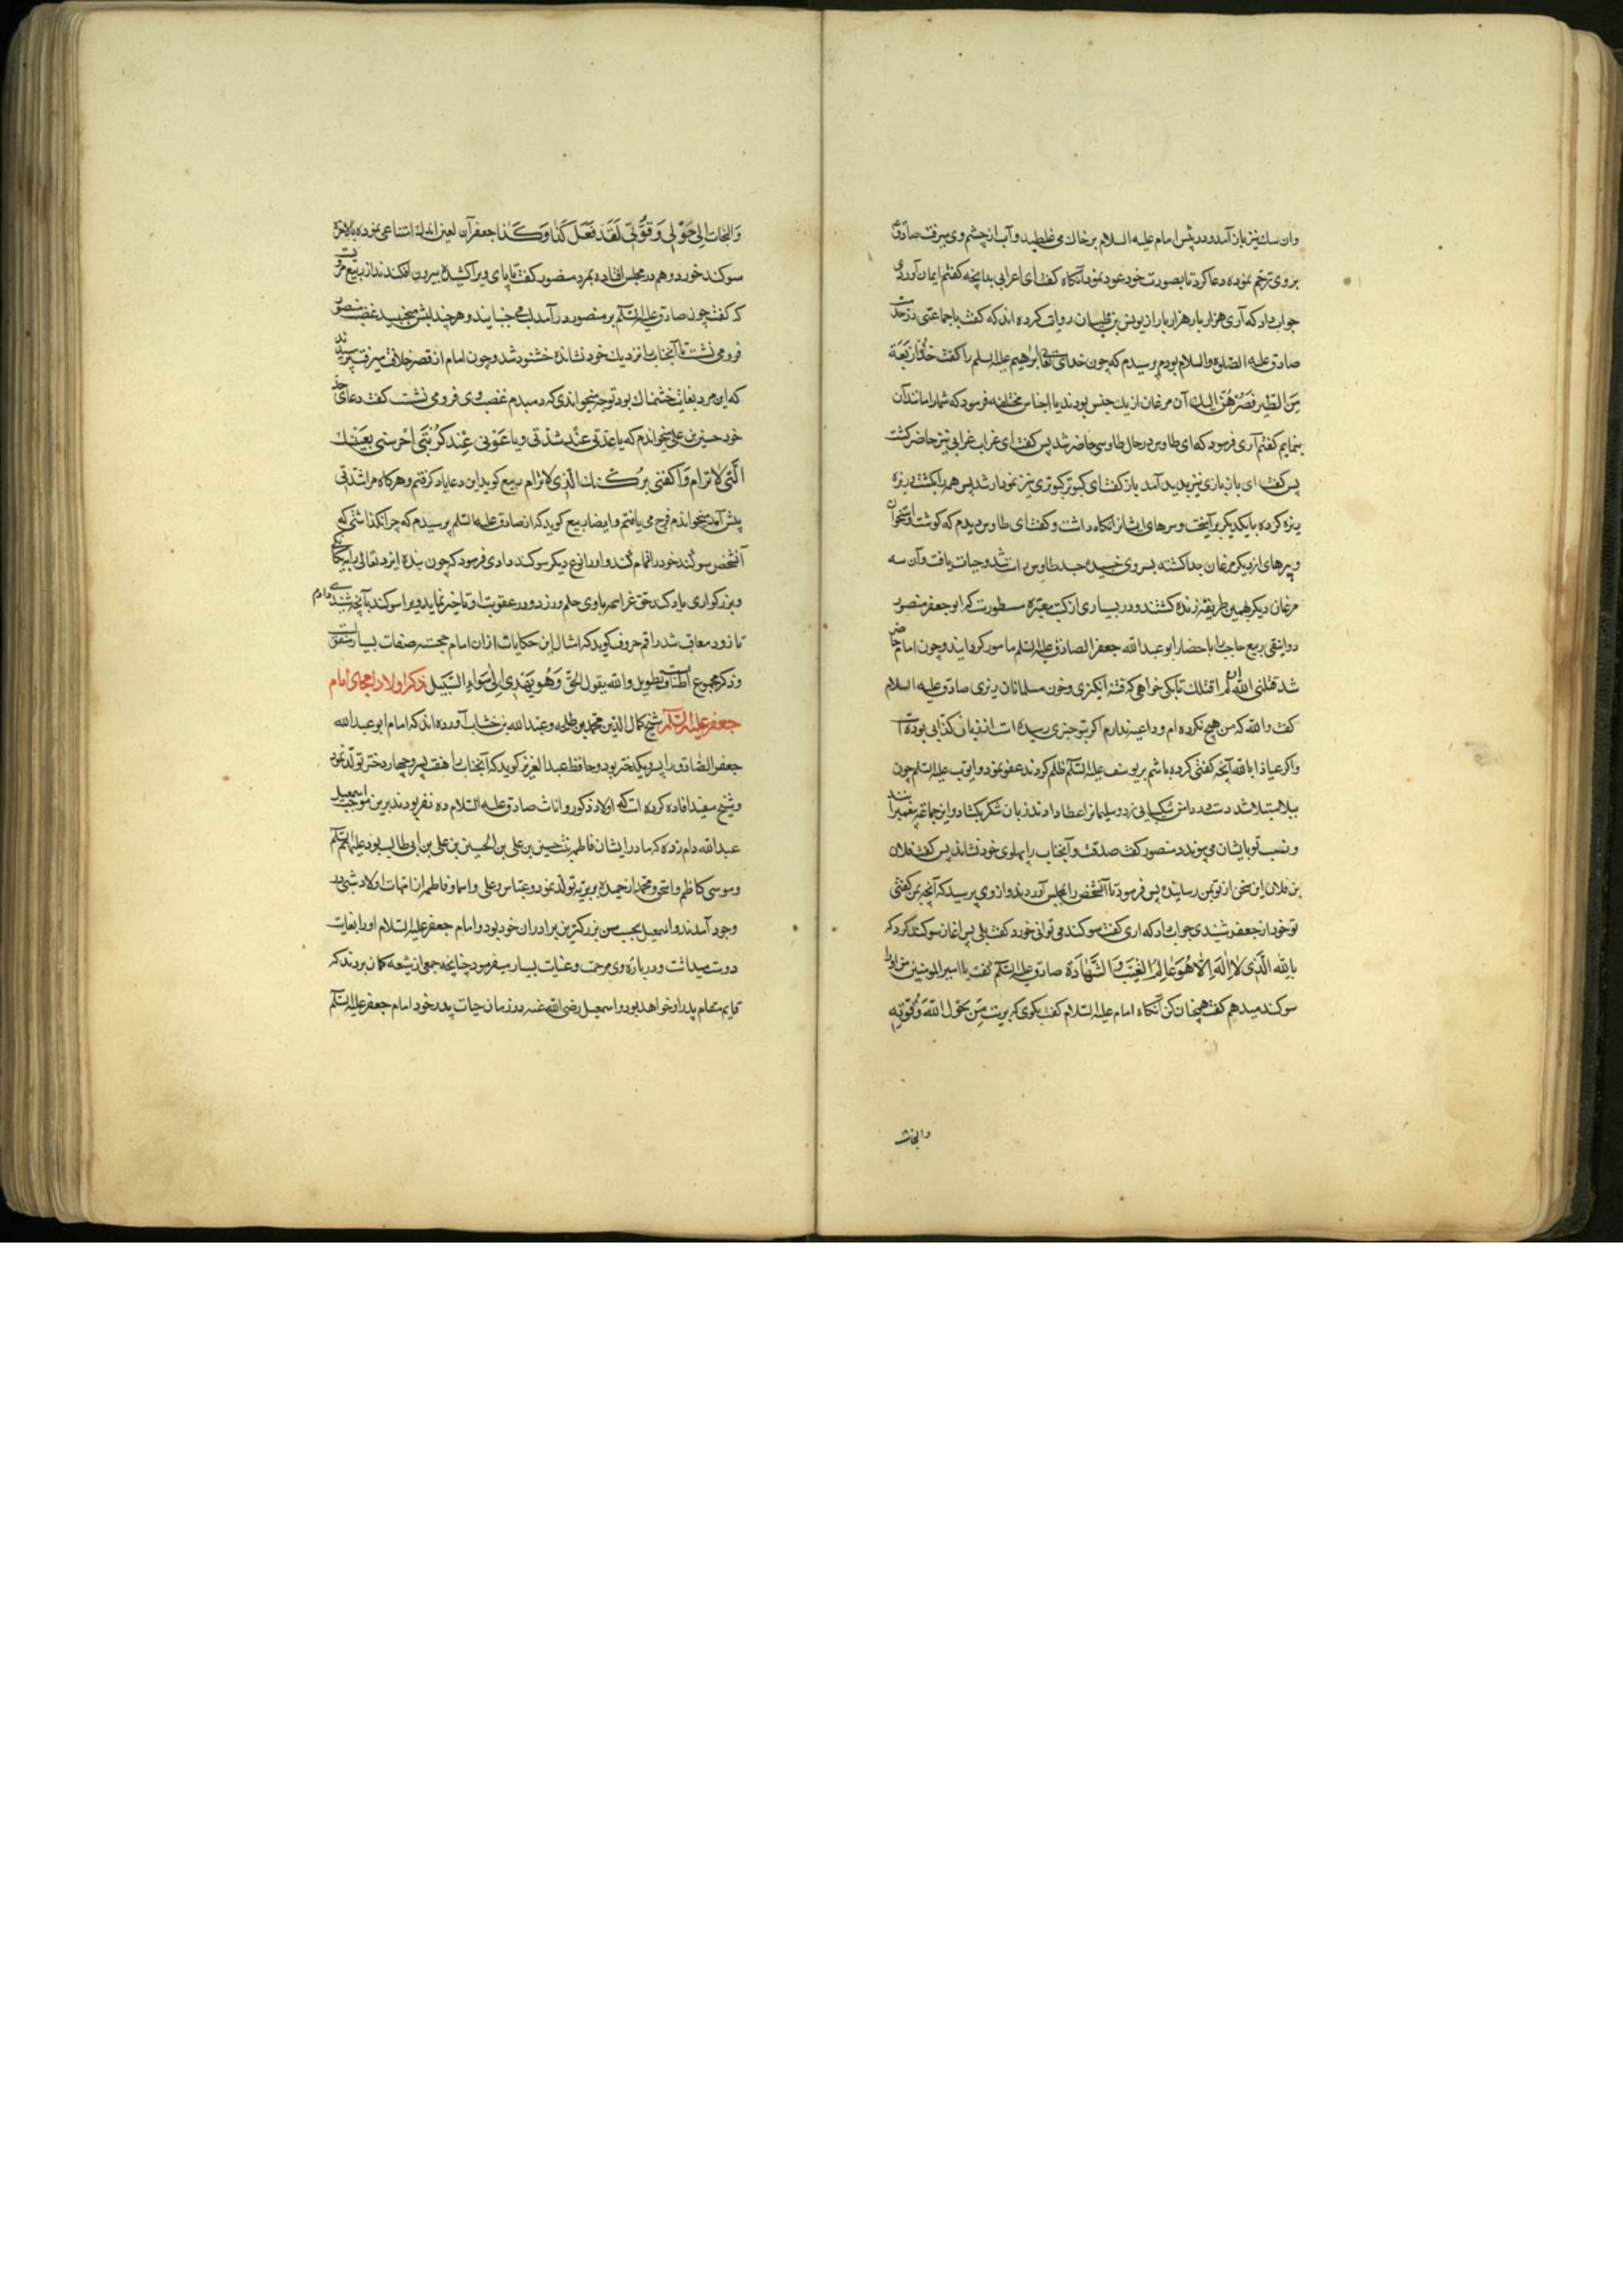 وان سک نیز باز آمد و در پیش امام علیه السلام بر خاک می غلطید و آب از چشم وی میرفت صادق
بر وی ترحم نموده دعا کرد تا بصورت خود عود نمود آنکاه کفت ای اعرابی بدانچه کفتم ایمان آوردی
جواب داد که آری هزار بار هزار بار از یونس بن ظبیان روایت کرده اند که کفت با جماعتی در خدمت
صادق علیه الصلوة والسلام بودم پرسیدم که چون خدای تعالی ابرهیم علیه السلم را کفت خُذْ اَرْبَعَة
مِنَ الطَیْرِ فَصُرْهُنَّ اِلیك آن مرغان از یک جنس بودند یا اجناس مختلفه فرمود که شما را مانند آن
بنمایم کفتم آری فرمود که ای طاوس در حال طاوسی حاضر شد پس کفت ای غراب غرابی نیز حاضر کشت
پس کفت ای باز بازی نیز پدید آمد باز کفت ای کبوتر کبوتری نیز نمودار شد پس همه را بکشت و ریزه
ریزه کرده با یکدیکر برآمیخت و سرهای ایشانرا نکاه داشت و کفت ای طاوس دیدم که کوشت و استخوان
و پرهای از دیکر مرغان جدا کشته بسر وی چسبیده جسد طاوس راست شد و حیات یافت و آن سه
مرغان دیکر بهمین طریقه زنده کشتند و در بسیاری از کتب معتبره مسطورست که ابو جعفر منصور
دوانیقی ربیع حاجب را باحضار ابو عبد الله جعفر الصادق علیه السلم مامور کردانید و چون امام حاضر
شد قتلنی الله ان لم اقتلك تا بکی خواهی که فتنه انکیزی و خون مسلمانان ریزی صادق علیه السلام
کفت والله که من هیچ نکرده ام و داعیه ندارم اکر بتو چیزی رسیده است از زبان کذابی بوده است
واکر عیاذا بالله آنچه کفتی کرده باشم بر یوسف علیه السلم ظلم کردند عفو نمود و ایوب علیه السلم چون
ببلا مبتلا شد دست در دامن شکیبایی زد و سلیمانرا عطا دادند زبان شکر بکشاد و این جماعة پیغمبرانند
و نسب تو بایشان می پیوندد منصور کفت صدقت و آنجناب را بپهلوی خود نشاند پس کفت فلان
بن فلان این سخن از تو بمن رسانیده پس فرمود تا آنشخص را بمجلس آوردند و از وی پرسید که آنچه بمن کفتی
تو خود از جعفر شنیدی جواب داد که اری کفت سوکند می توانی خورد کفت بلی پس اغاز سوکند کرد که
بِالله الَّذی لا اِلهَ اِلّا هُوَ عَالِمُ الغَیْبِ وَ الشَّهَادَة صادق علیه السلم کفت یا امیر المومنین من او را
سوکند میدهم کفت همچنان کن آنکاه امام علیه السلام کفت بکوی که بریت مِن حَول الله وَقُوَّتِه
والتجات
وَ التجات اِلی حَوْلی وَ قُوَّتی لَقَدْ فَعَلَ کَذا وَ کَذا جعفر آن لعین اندک امتناعی نموده بالاخره
سوکند خورد و هم در مجلس افتاده بمرد منصور کفت تا پای ویرا کشیده بیرون افکندند از ربیع مرویست
که کفت چون صادق علیه السلم بر منصور در آمد لب می جنبانید و هر چند لبش میجنبید غضب منصور
فرو می نشست تا آنجناب را نزدیک خود نشانده خشنود شد و چون امام از قصر خلافت بیرون رفت پرسیدند
که این مرد بغایت خشمناک بود تو چه میخواندی که دمبدم غضب وی فرو می نشست کفت دعای جد
خود حسین بن علی میخواندم که یا عُدَّتی عِنْدَ شِدَّتی و یا غَوْثی عِنْدَ کُرْبَتی اُحْرُسْنی بِعَیْنِك
الَّتی لا تَنام وَ اکْنُفْنی بِرُکْنِك الَّذی لا یُرام ربیع کوید این دعا یاد کرفتم و هرکاه مرا شدتی
پیش آمد میخواندم فرج می یافتم و ایضا ربیع کوید که از صادق علیه السلم پرسیدم که چرا نکذاشتی که
آنشخص سوکند خود را تمام کند و او را نوع دیکر سوکند دادی فرمود که چون بنده ایزد تعالی را بیکانکی
و بزرکواری یاد کند حق عز اسمه باوی حلم ورزد و در عقوبت او تاخیر نماید ویرا سوکند بآنچه شنیدی دادم
تا زود معاقب شد راقم حروف کوید که امثال این حکایات از ان امام خجسته صفات بسیار منقولست
و ذکر مجموع اطناب و تطویل والله یقول الحَقَّ وَهُوَ یَهْدِی اِلی سَواءِ السَّبیل ذکر اولاد امجاد امام
جعفر علیه السلم شیخ کمال الدین محمد بن طلحه و عبد الله بن خشاب آورده اند که امام ابو عبد الله
جعفر الصادق را پسر و یکدختر بود و حافظ عبد العزیز کوید که آنجناب را هفت پسر و چهار دختر تولد نمود
و شیخ مفید افاده کرده است که اولاد ذکور و اناث صادق علیه السلام ده نفر بودند برین موجب اسمعیل
عبد الله دام زده که مادر ایشان فاطمه بنت حسین بن علی بن الحسین بن علی بن ابی طالب بود علیهم السلم
و موسی کاظم و اسحق و محمد از حمیده بربریه تولد نمود و عباس و علی و اسما و فاطمه از امهات اولاد شتی در
وجود آمدند و اسمعیل بحسب سن بزرکترین برادران خود بود و امام جعفر علیه السلام او را بغایت
دوست میداشت و درباره وی مرحمت و عنایات بسیار میفرمود چنانچه جمعی از شیعه کمان بردند که
قایم مقام پدر او خواهد بود و اسمعیل رضی الله عنه در زمان حیات پدر خود امام جعفر علیه السلم